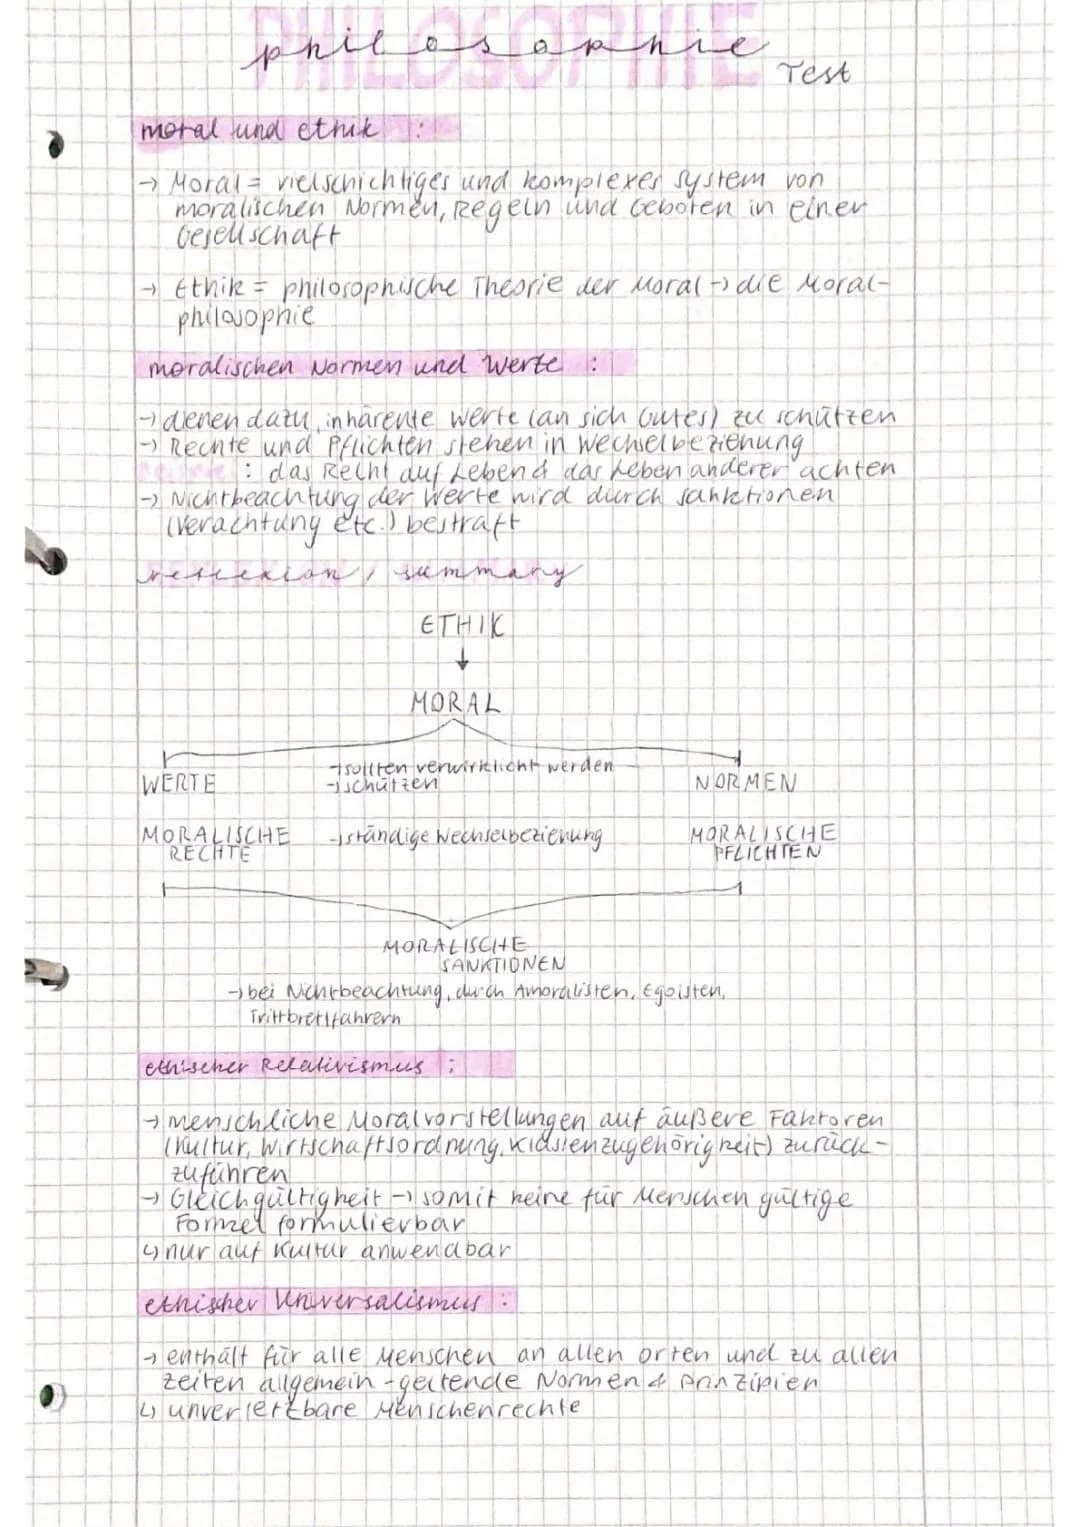 PHILOSOPHIE
philosophie
Test
moral und ethik :
→ Moral = vielschichtiges und komplexes system von
moralischen Normen, Regeln und Geboten in einer
Gesellschaft
→ Ethik = philosophische Theorie der Moral → die Moral-
philosophie
moralischen Normen und Werte :
→ dienen dazu, inhärente Werte (an sich Gutes) zu schützen
→ Rechte und Pflichten stehen in Wechselbeziehung
: das Recht auf Leben & das Leben anderer achten
→ Nichtbeachtung der Werte wird durch Sanktionen
(Verachtung etc.) bestraft
reflexion / summary
ETHIK
↓
MORAL
→ sollten verwirklicht werden
WERTE → schützen NORMEN
MORALISCHE → ständige Wechselbeziehung MORALISCHE
RECHTE PFLICHTEN
MORALISCHE
SANKTIONEN
→ bei Nichtbeachtung, durch Amoralisten, Egoisten,
Trittbrettfahrern
ethischer Relativismus :
→ menschliche Moralvorstellungen auf äußere Faktoren
(Kultur, Wirtschaftsordnung, Klassenzugehörigkeit) zurück-
zuführen
→ Gleichgültigkeit → somit keine für Menschen gültige
Formel formulierbar
↳ nur auf Kultur anwendbar
ethischer Universalismus :
→ enthält für alle Menschen an allen orten und zu allen
zeiten allgemein-geltende Normen & Prinzipien
↳ unverletzbare Menschenrechte